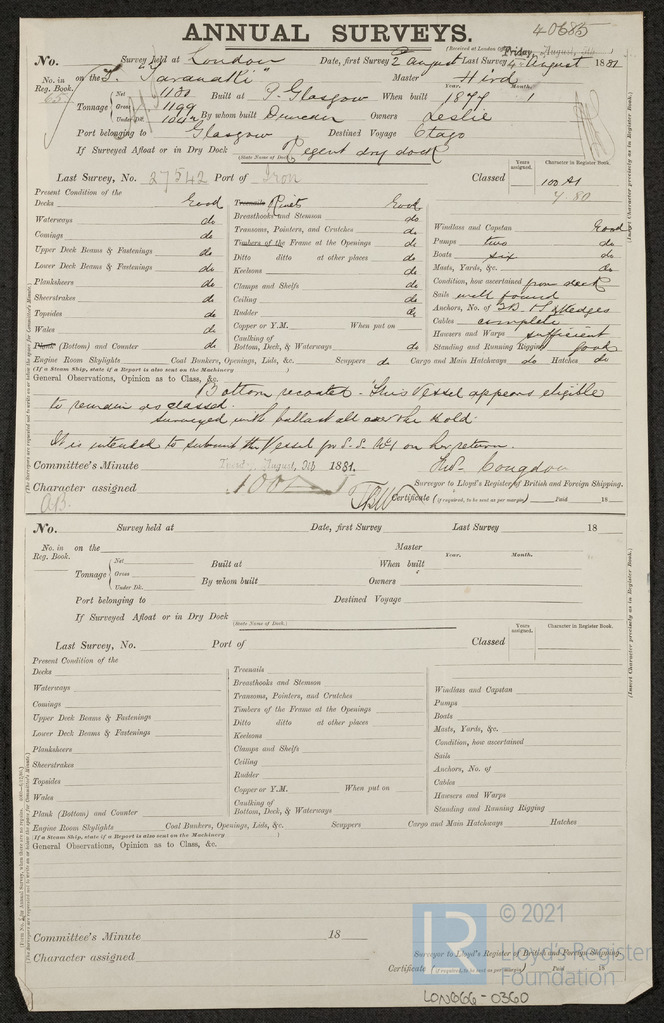 ANNUAL SURVEYS.
40685
(Received at London Friday, August, 5th
No. Survey held at London Date, first Survey 2 August Last Survey 4th August 1881
No. in Reg. Book. on the "Taranaki" Master Hird
Tonnage Net 1130 Gross 1199 Under Dk. Built at P. Glasgow When built Year. 1877 Month. 1
By whom built Duncan Owners Leslie
Port belonging to Glasgow Destined Voyage Otago
If Surveyed Afloat or in Dry Dock Regent dry dock
(State Name of Dock.)
Last Survey, No. 27542 Port of Iron Classed Years assigned. Character in Register Book. 100 A1
7.80
(Insert Character precisely as in Register Book.)
Present Condition of the
Decks Good
Waterways do
Comings do
Upper Deck Beams & Fastenings do
Lower Deck Beams & Fastenings do
Planksheers do
Sheerstrakes do
Topsides do
Wales do
Plank (Bottom) and Counter do
Treenails Rivets Good
Breasthooks and Stemson do
Transoms, Pointers, and Crutches do
Timbers of the Frame at the Openings do
Ditto ditto at other places do
Keelsons do
Clamps and Shelfs do
Ceiling do
Rudder do
Copper or Y.M. When put on
Caulking of Bottom, Deck, & Waterways do
Windlass and Capstan Good
Pumps two do
Boats six do
Masts, Yards, &c. do
Condition, how ascertained from deck
Sails well found
Anchors, No. of 3B. 1S. 2 Kedges
Cables complete
Hawsers and Warps sufficient
Standing and Running Rigging good
Engine Room Skylights Coal Bunkers, Openings, Lids, &c. Scuppers do Cargo and Main Hatchways do Hatches do
(If a Steam Ship, state if a Report is also sent on the Machinery )
General Observations, Opinion as to Class, &c.
Bottom recoated. This Vessel appears eligible
to remain as classed.
Surveyed with ballast all over the hold.
It is intended to submit the Vessel for S.S. No 1 on her return.
Committee's Minute Tuesday, August, 9th 1881. Congdon
Surveyor to Lloyd's Register of British and Foreign Shipping.
Character assigned 100A1
Certificate (if required, to be sent as per margin) Paid 18
No. Survey held at Date, first Survey Last Survey 18
No. in Reg. Book. on the Master
Tonnage Net Gross Under Dk. Built at When built Year. Month.
By whom built Owners
Port belonging to Destined Voyage
If Surveyed Afloat or in Dry Dock
(State Name of Dock.)
Last Survey, No. Port of Classed Years assigned. Character in Register Book.
(Insert Character precisely as in Register Book.)
Present Condition of the
Decks
Waterways
Comings
Upper Deck Beams & Fastenings
Lower Deck Beams & Fastenings
Planksheers
Sheerstrakes
Topsides
Wales
Plank (Bottom) and Counter
Treenails
Breasthooks and Stemson
Transoms, Pointers, and Crutches
Timbers of the Frame at the Openings
Ditto ditto at other places
Keelsons
Clamps and Shelfs
Ceiling
Rudder
Copper or Y.M. When put on
Caulking of Bottom, Deck, & Waterways
Windlass and Capstan
Pumps
Boats
Masts, Yards, &c.
Condition, how ascertained
Sails
Anchors, No. of
Cables
Hawsers and Warps
Standing and Running Rigging
Engine Room Skylights Coal Bunkers, Openings, Lids, &c. Scuppers Cargo and Main Hatchways Hatches
(If a Steam Ship, state if a Report is also sent on the Machinery )
General Observations, Opinion as to Class, &c.
Committee's Minute 18
Surveyor to Lloyd's Register of British and Foreign Shipping.
Character assigned
Certificate (if required, to be sent as per margin) Paid 18
LR © 2021
Lloyd's Register
Foundation
LON866-0360